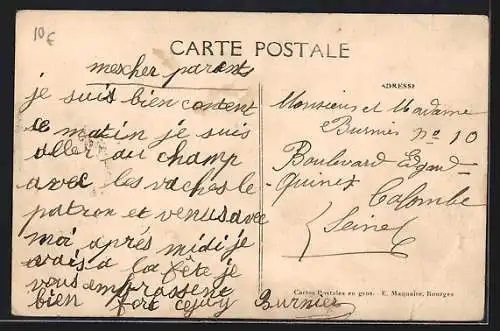 10€
CARTE POSTALE
mescher parents
je suis bien content
ce matin je suis
aller au champ
avec les vaches le
patron et venus avec
moi aprés midi je
vais a la fête je
vous embrassent
bien fort Burnier
ADRESSE
Monsieur et Madame
Burnier no 10
Boulevard Edgard-
Quinet
Colombe
(Seine)
Cartes Postales en gros. E. Maquaire, Bourges